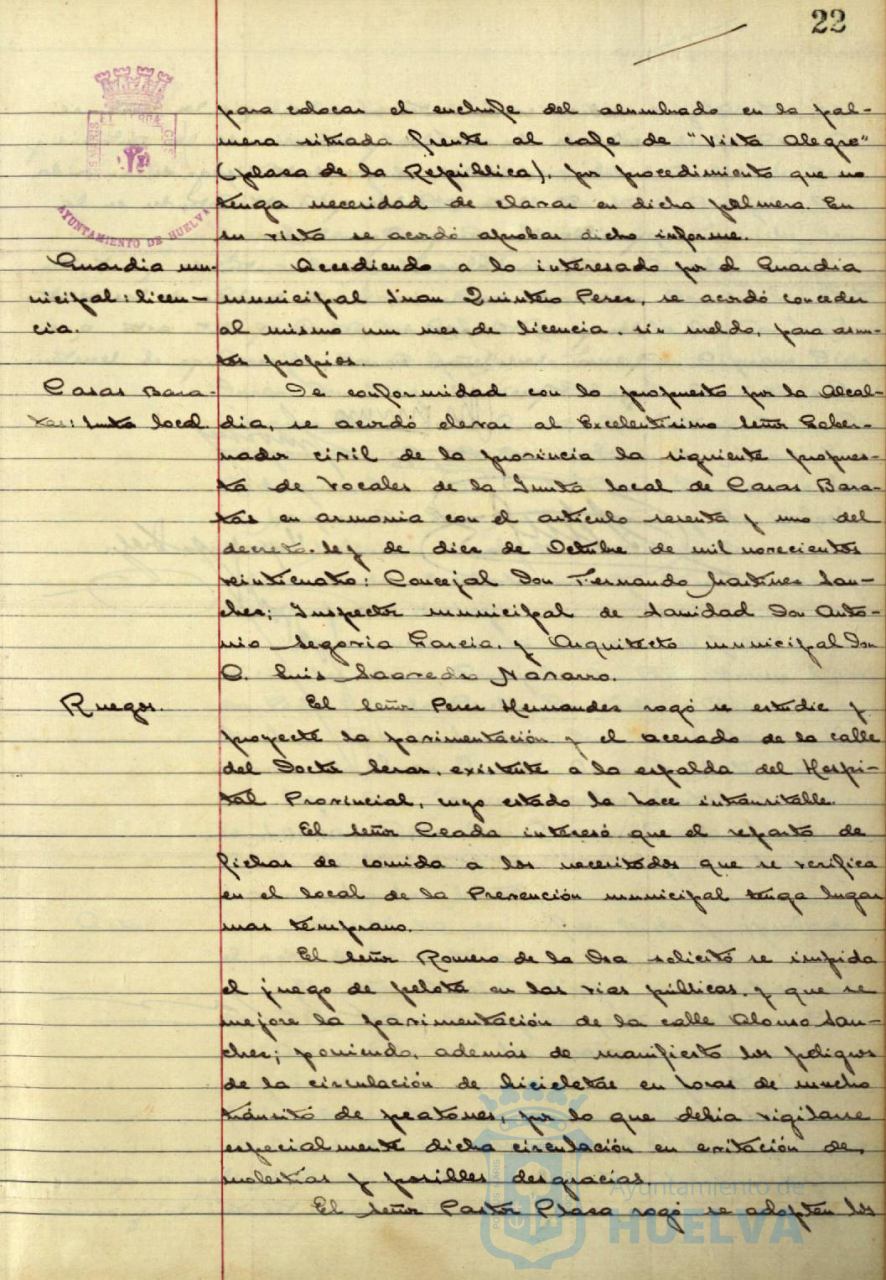 22
para colocar el enchufe del alumbrado en la pal-
mera situada frente al cafe de "Vista Alegre"
(plasa de la República), por procedimiento que no
tenga necesidad de clavar en dicha palmera. En
su vista se acordó aprobar dicho informe.
AYUNTAMIENTO DE HUELVA
Guardia mu-
nicipal: licen-
cia.
Accediendo a lo interesado por el Guardia
municipal Juan Quintero Peres, se acordó conceder
al mismo un mes de licencia, sin sueldo, para asun-
tos propios.
Casas Bara-
tas: Junta local.
De conformidad con lo propuesto por la Alcal-
dia, se acordó elevar al Excelentisimo Señor Gober-
nador civil de la provincia la siguiente propues-
ta de Vocales de la Junta local de Casas Bara-
tas en armonia con el articulo sesenta y uno del
decreto-ley de dies de Octubre de mil novecientos
veinticuatro: Concejal Don Fernando Martines San-
ches; Inspector municipal de Sanidad Don Anto-
nio Segovia Garcia, y Arquitecto municipal Don
Luis Saavedra Navarro.
Ruegos.
El Señor Peres Hernandes rogó se estudie y
proyecte la pavimentación y el acerado de la calle
del Doctor Seras, existente a la espalda del Hospi-
tal Provincial, cuyo estado la hace intransitable.
El Señor Ceada interesó que el reparto de
fichas de comida a los necesitados que se verifica
en el local de la Prevención municipal tenga lugar
mas temprano.
El Señor Romero de la Osa solicitó se impida
el juego de pelota en las vias públicas, y que se
mejore la pavimentación de la calle Alonso San-
ches; poniendo, además de manifiesto los peligros
de la circulación de bicicletas en horas de mucho
tránsito de peatones, por lo que debia vigilarse
especialmente dicha circulación en evitación de
molestias y posibles desgracias.
El Señor Pastor Plasa rogó se adopten los
Ayuntamiento de
HUELVA